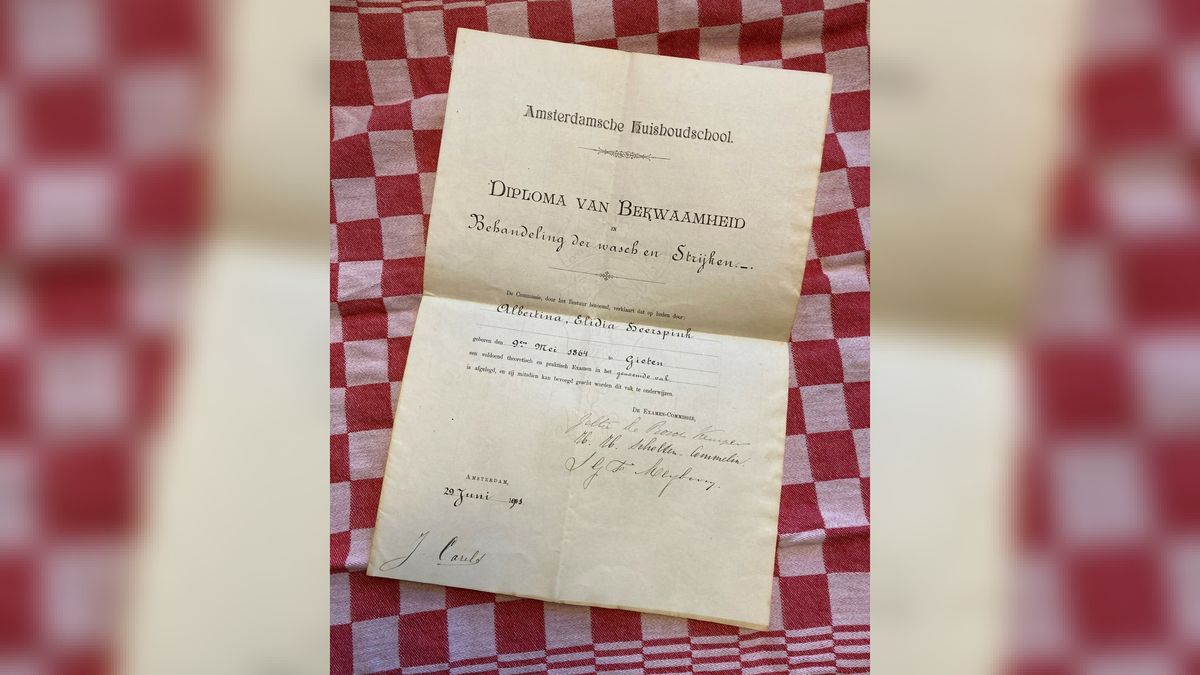 Amsterdamsche Huishoudschool.
DIPLOMA VAN BEKWAAMHEID
IN
Behandeling der wasch en Strijken.
De Commissie, door het Bestuur benoemd, verklaart dat op heden door:
Albertina, Elidia Heerspink
geboren den 9en Mei 1864 te Gieten
een voldoend theoretisch en praktisch Examen in het genoemde vak
is afgelegd, en zij mitsdien kan bevoegd geacht worden dit vak te onderwijzen.
DE EXAMEN-COMMISSIE,
Jeltje de Bosch Kemper
Scholten-Commelin.
AMSTERDAM,
29 Juni